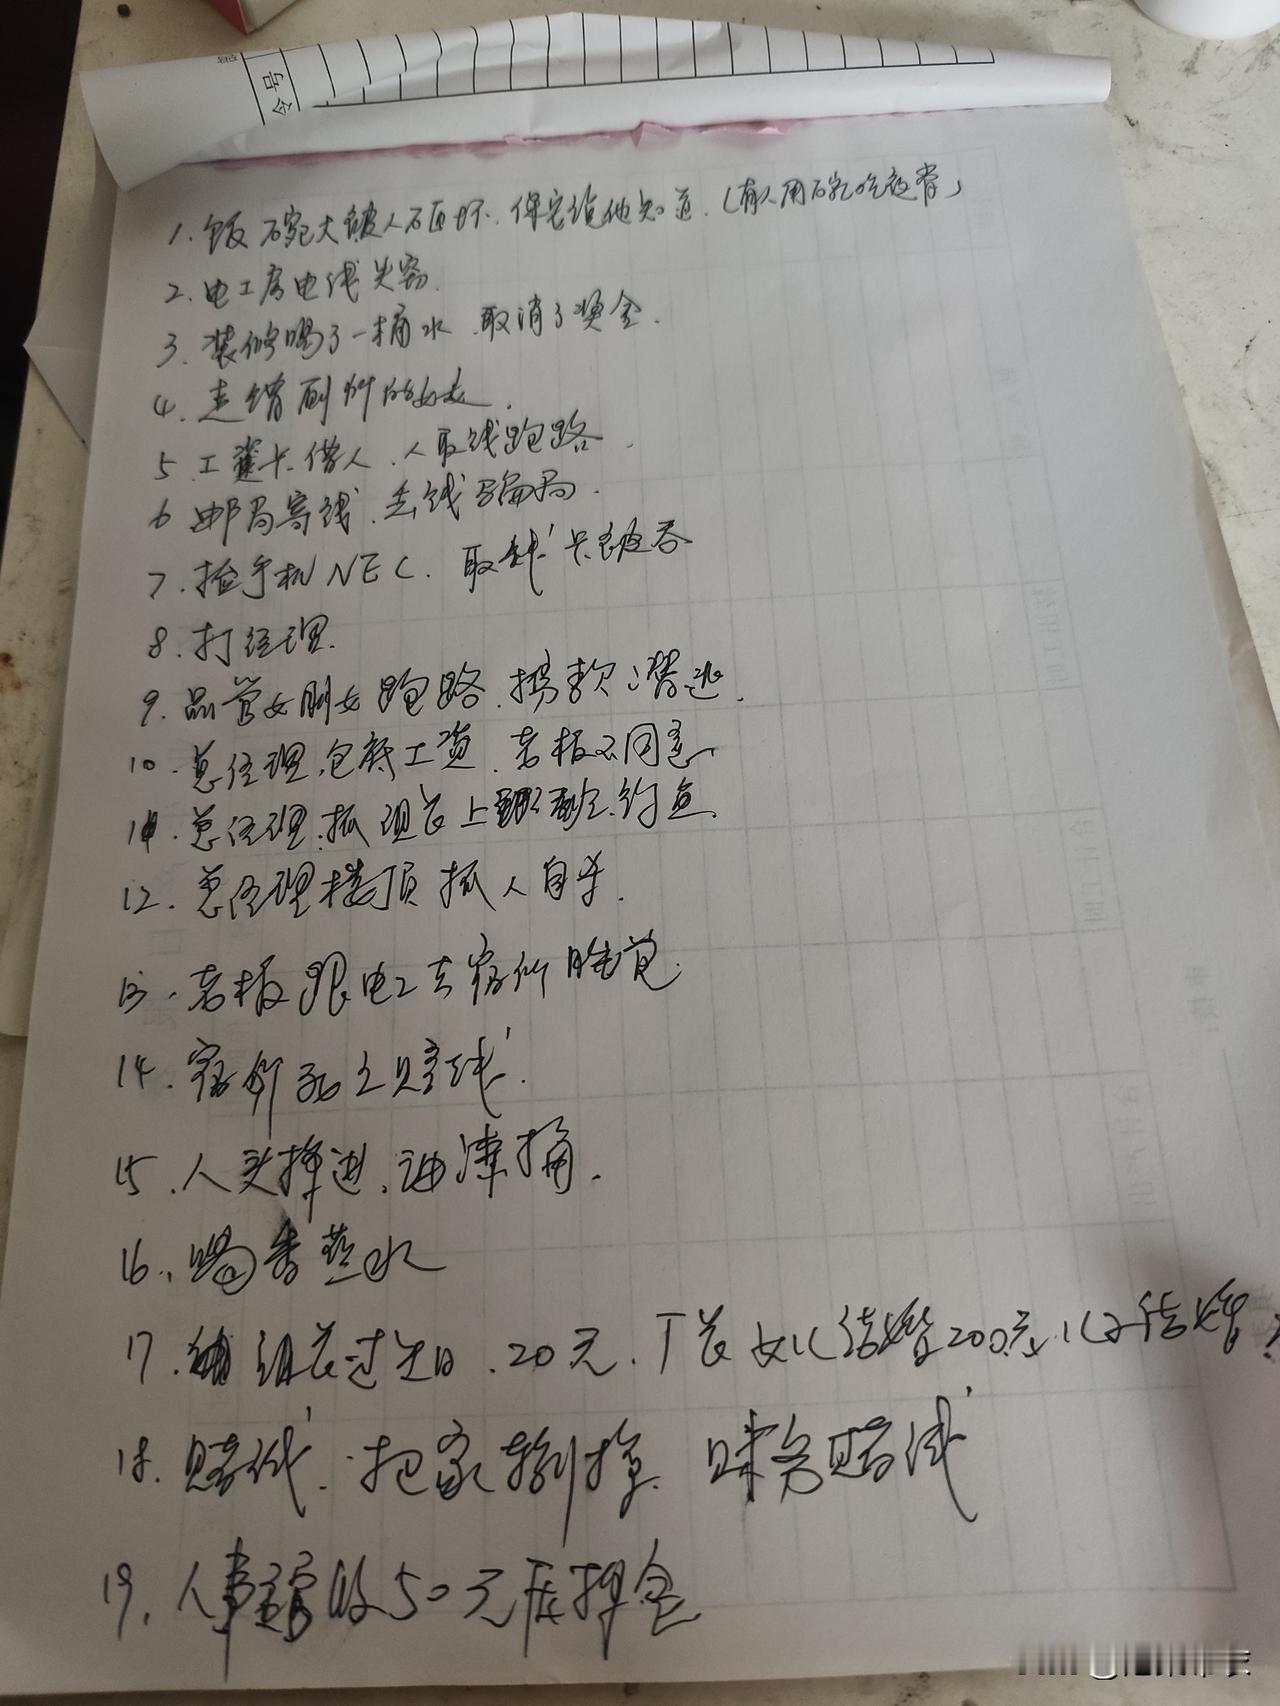 1. 饭碗大被人砸坏. 保安给他知道. (有人用碗吃夜宵)
2. 电工房电线失窃.
3. 装修喝了一桶水. 取消了奖金.
4. 走错厕所的女
5. 工资卡借人. 人取钱跑路.
6 邮局寄钱. 去钱骗局.
7. 捡手机NEC. 取钱卡被吞
8. 打经理.
9. 品管女朋友跑路. 携款潜逃.
10. 总经理包底工资. 老板不同意
11. 总经理. 抓现长上班钓鱼.
12. 总经理楼顶抓人自杀.
13. 老板跟电工去宿所睡觉.
14. 宿所死上赌钱.
15. 人头掉进. 油漆桶.
16. 喝香蕉水
17. 组长过生日. 20元. 厂长女儿结婚200元. 儿子结婚
18. 赌钱. 把家捌掉. 赌钱
19. 人事 收50元压押金